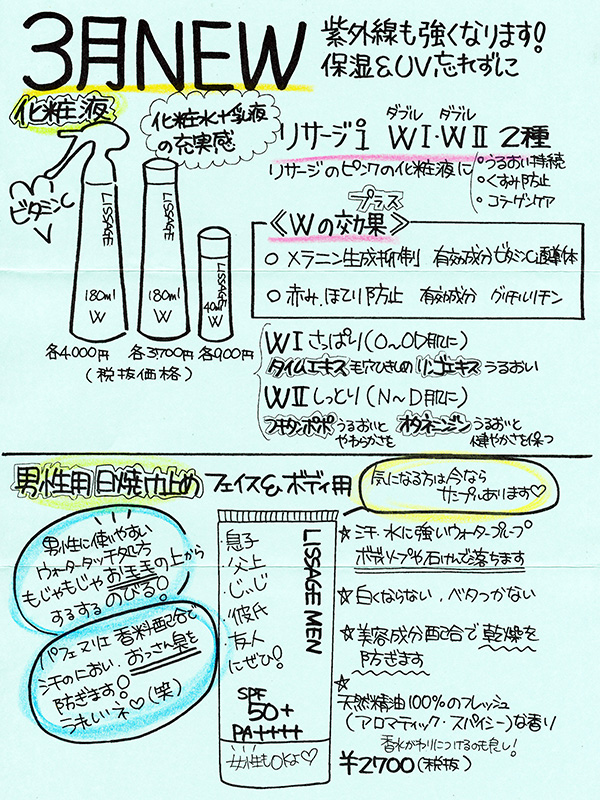 3月NEW
紫外線も強くなります!
保湿&UV忘れずに
化粧液
化粧水+乳液
の充実感
ビタミンC
LISSAGE
180ml
W
LISSAGE
180ml
W
LISSAGE
40ml
W
各4.000円 各3.700円 各900円
(税抜価格)
ダブル ダブル
リサージi WI・WII 2種
リサージのピンクの化粧液に
○うるおい持続
○くすみ防止
○コラーゲンケア
プラス
《Wの効果》
○ メラニン生成抑制 有効成分ビタミンC誘導体
○ 赤み、ほてり防止 有効成分 グリチルリチン
WI さっぱり(O〜OD肌に)
タイムエキス毛穴ひきしめ リンゴエキス うるおい
WII しっとり(N〜D肌に)
フキタンポポ うるおいと やわらかさを オタネニンジン うるおいと 健やかさを保つ
男性用 日焼け止め フェイス&ボディ用
気になる方は今なら
サンプルあります♡
男性に使いやすい
ウォータータッチ処方
もじゃもじゃお毛毛の上から
するするのびる!
パフェマリエ香料配合で
汗のにおい、おっさん臭を
防ぎます!
うれしいネ♡(笑)
・息子
・父上
・じぃじ
・彼氏
・友人
にぜひ!
LISSAGE MEN
SPF
50+
PA++++
女性もOKよ♡
☆汗・水に強いウォータープルーフ
ボディソープや石けんで落ちます
☆白くならない、ベタつかない
☆美容成分配合で乾燥を
防ぎます
☆
天然精油100%のフレッシュ
(アロマティック・スパイシー)な香り
香水がわりにつけるのも良し!
¥2700(税抜)